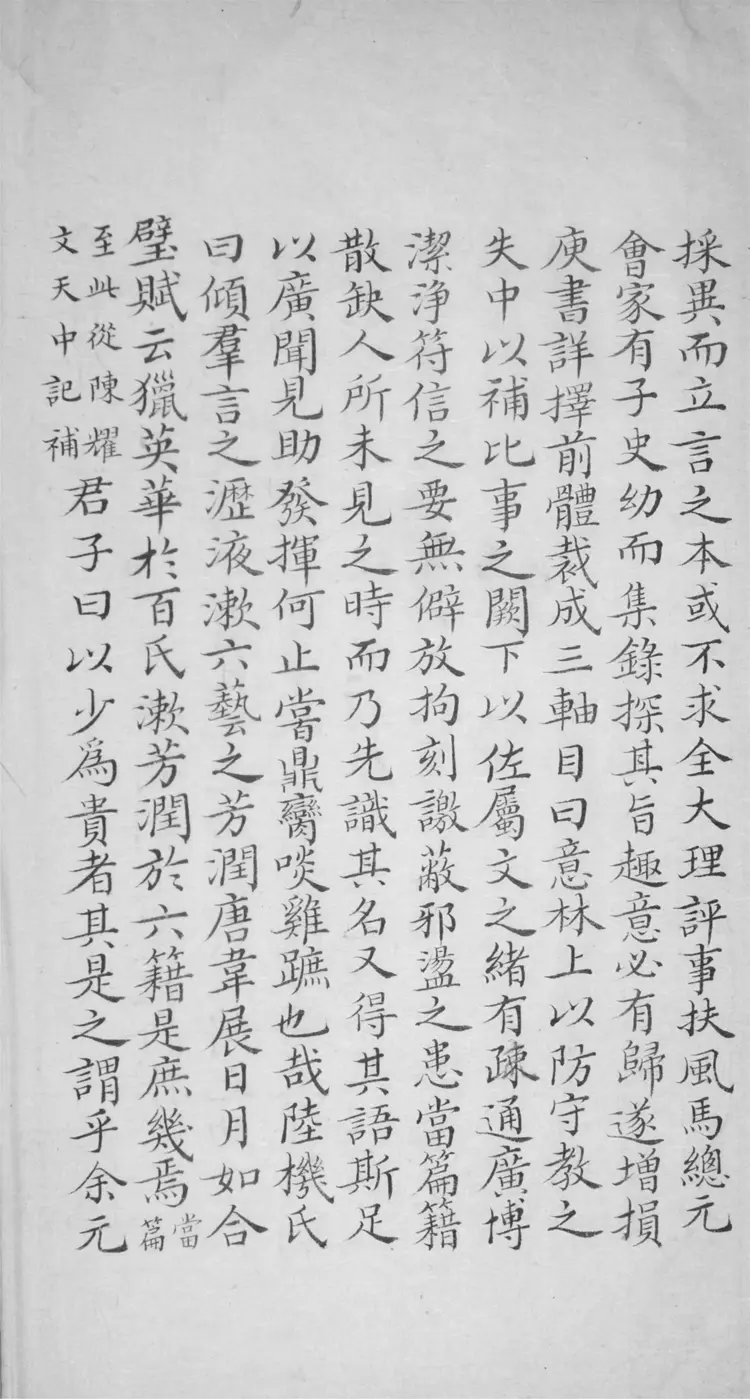 採異而立言之本或不求全大理評事扶風馬總元
會家有子史幼而集錄探其旨趣意必有歸遂增損
庾書詳擇前體裁成三軸目曰意林上以防守教之
失中以補比事之闕下以佐屬文之緒有疎通廣博
潔淨符信之要無僻放拘刻譤蔽邪盪之患當篇籍
散缺人所未見之時而乃先識其名又得其語斯足
以廣聞見助發揮何止嘗鼎臠啖雞蹠也哉陸機氏
曰傾羣言之瀝液漱六藝之芳潤唐韋展日月如合
璧賦云獵英華於百氏漱芳潤於六籍是庶幾焉當篇
至此從陳耀文天中記補君子曰以少爲貴者其是之謂乎余元